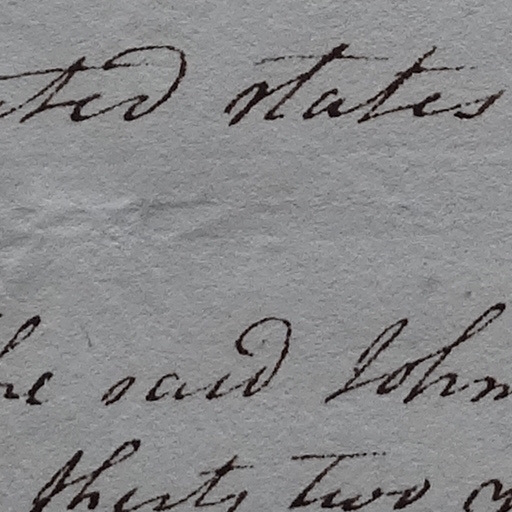 ted states
he said John
thirty two